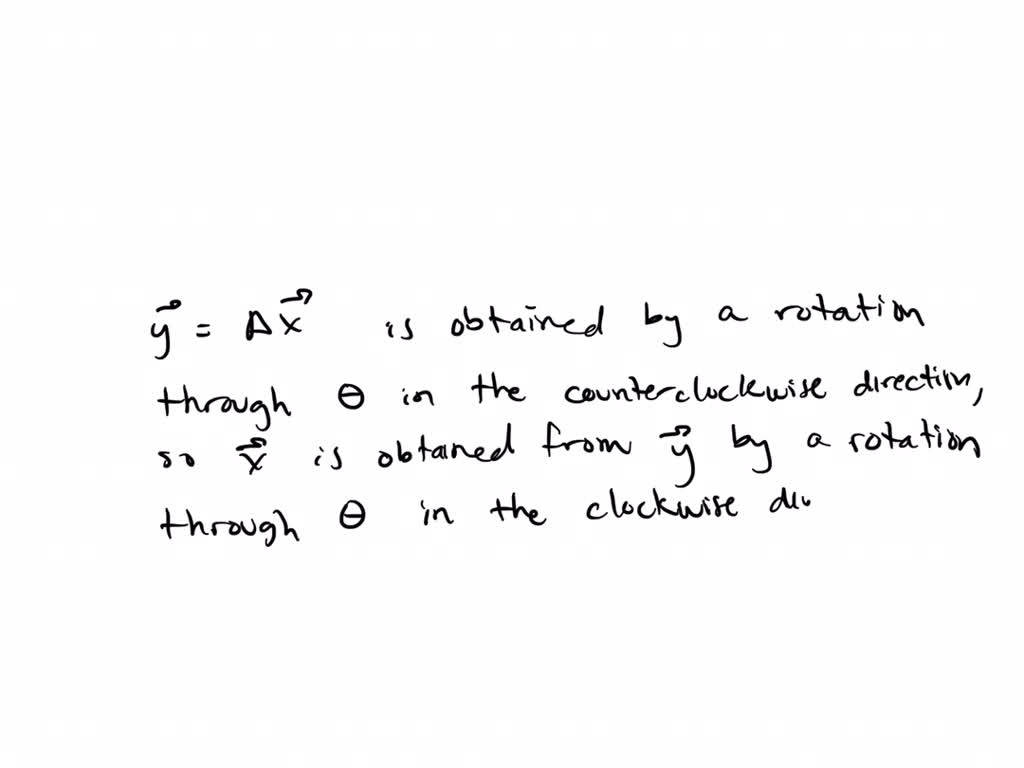 y⃗ = Ax⃗ is obtained by a rotation
through θ in the counterclockwise direction,
so x⃗ is obtained from y⃗ by a rotation
through θ in the clockwise